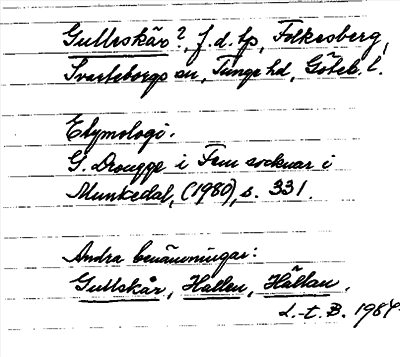 Gulleskär?, f.d. tp, Folkesberg,
Svarteborgs sn, Tunge hd, Göteb. l.
Etymologi:
G. Drougge i Fem socknar i
Munkedal, (1980), s. 331.
Andra benämningar:
Gullskår, Hallen, Hällan.
L.-t. B. 1984